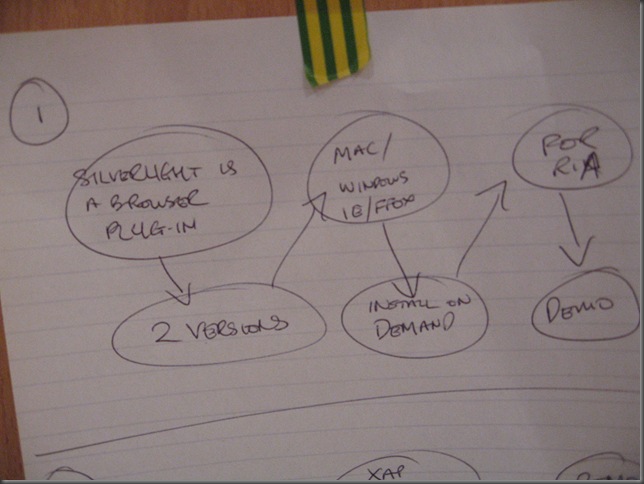 1
SILVERLIGHT IS
A BROWSER
PLUG-IN
2 VERSIONS
MAC/
WINDOWS
IE/FFOX
INSTALL ON
DEMAND
FOR
RIA
DEMO
XAP